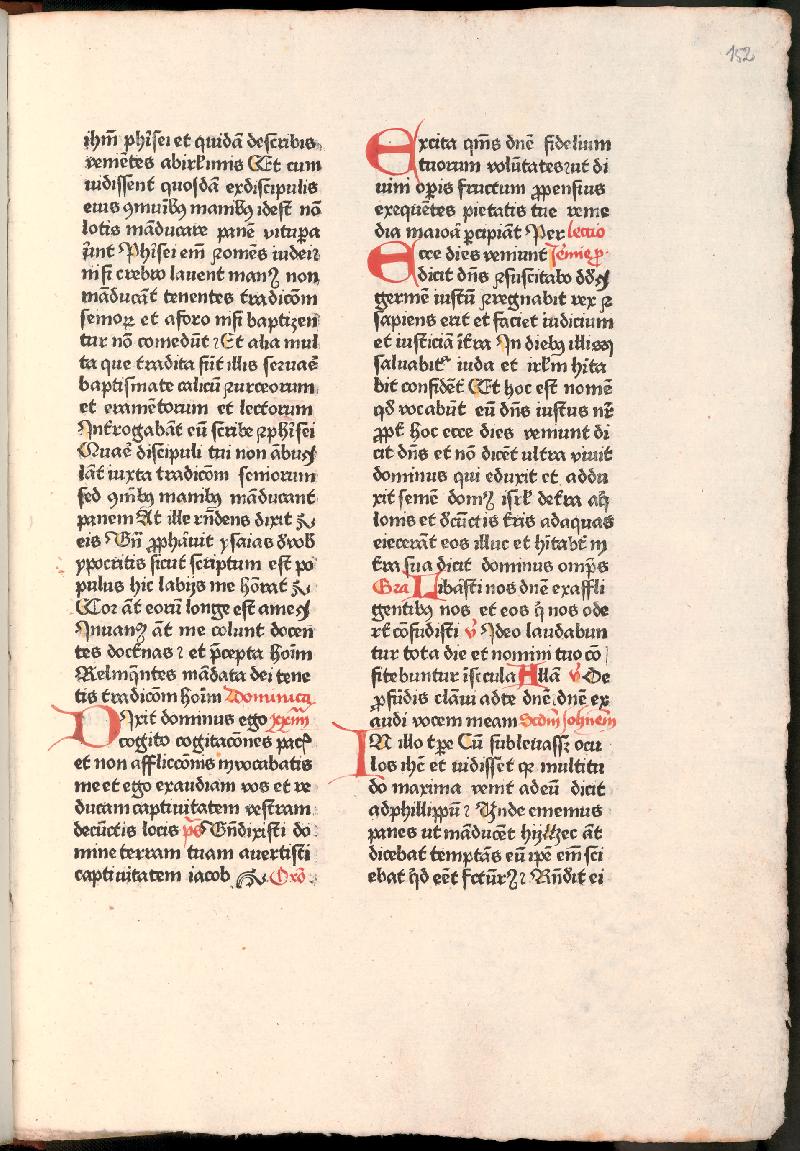 152
ihm̄ phīsei et quidā describis
veniētes abirl'imis Et cum
vidissent quosdā exdiscipulis
eius ꝯmuībꝰ manibꝰ idest nō
lotis māducare panē vitupa
rūnt Phīsei em̄ ꝛomēs iudei
nisi crebro lauent manꝰ non
māducāt tenentes tradicōm
semoꝝ et aforo nisi baptizen
tur nō comedūt Et alia mul
ta que tradita sūt illis seruae
baptismate calicū ꝛurceorum
et eramētorum et lectorum
Introgabāt eū scribe ꝛphīsei
Quaē discipuli tui non ābuꝯ
lāt iuxta tradicōm seniorum
sed ꝯmībꝰ manibꝰ māducant
panem At ille rn̄dens dixit
eis Bn̄ ꝓphāuit ysaias dvob
ypocritis sicut scriptum est po
pulus hic labijs me hōrat
Cor āt eorū longe est ame
Inuanꝰ āt me colunt docen
tes doctnās et p̄cepta hoīm
Relinqntes mādata dei tene
tis tradicōm hoīm Dominica
Dixit dominus ego xxiiii
cogito cogitacōnes pacꝭ
et non affliccōnis invocabatis
me et ego exaudiam vos et re
ducam captiuitatem vestram
decūctis locis ps̄ Bn̄dixisti do
mine terram tuam auertisti
captiuitatem iacob Orō
Excita qm̄s dnē fidelium
tuorum volūtates ut di
uini opis fructum ꝓpensius
exequētes pietatis tue reme
dia maiora pcipiāt Per lectio
Ecce dies veniunt Jēmie ꝓ
dicit dn̄s ꝛsuscitabo dd
germē iustū ꝛregnabit rex ꝛ
sapiens erit et faciet iudicium
et iusticiā īt̄ra In diebꝰ illis
saluabit' iuda et irl'm hita
bit confidēt Et hoc est nomē
qd̄ vocabūt eū dn̄s iustus nr̄
ꝓpt̄ hoc ecce dies veniunt di
cit dn̄s et nō dicēt ultra viuit
dominus qui eduxit et addu
xit semē domꝰ isrl' det̄ra aq̄
lonis et dcūctis t̄ris adaquas
eiecerāt eos illuc et hītabt̄ in
t̄ra sua dicit dominus omp̄s
Gra Libāsti nos dnē exaffli
gentibꝰ nos et eos q̄ nos ode
rt̄ cōfudisti v̄ Ideo laudabun
tur tota die et nomini tuo cō
fitebuntur īsecula Allā v̄ De
ꝓfūdis clāui adte dnē dnē ex
audi vocem meam Scdm̄ Johnem
In illo tpe Cū subleuassꝫ ocu
los ihc̄ et vidisset qꝛ multitu
do maxima venit adeū dicit
adphillippū Unde ememus
panes ut māducēt hij hec āt
dicebat temptās eū ipē em̄ sci
ebat qd̄ eēt fctūrꝰ Rn̄dit ei